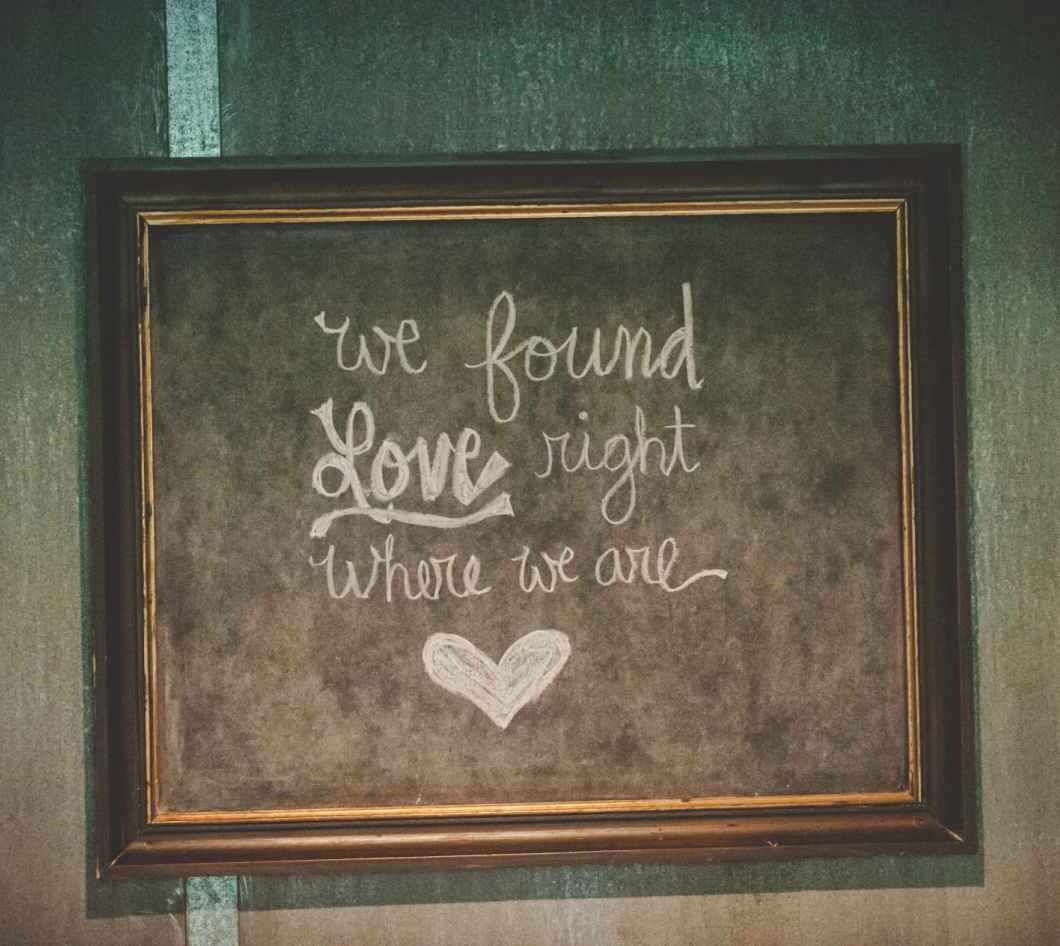 we found
Love right
where we are